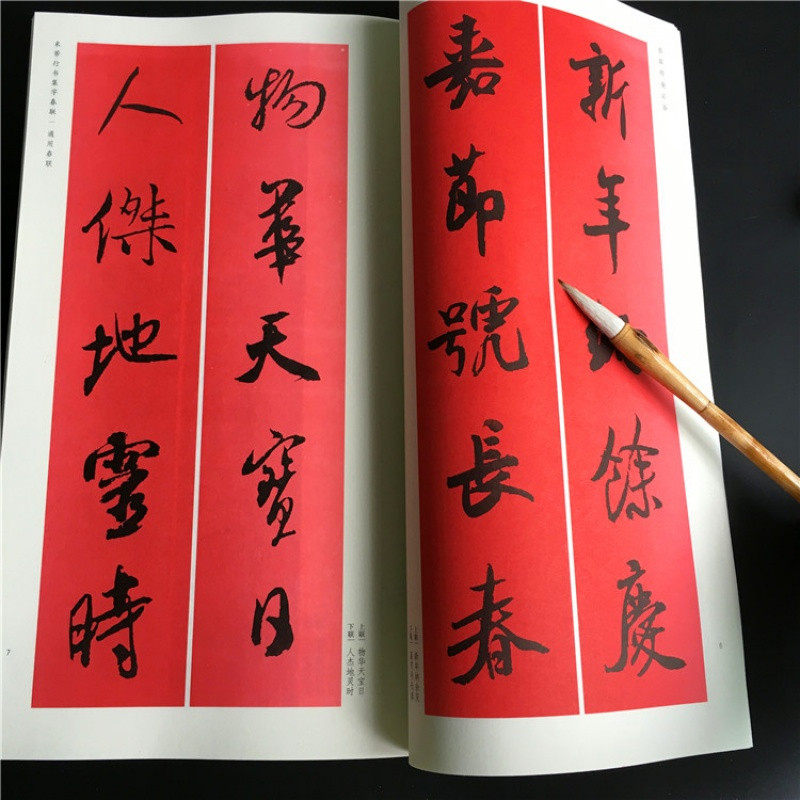 新年餘慶
嘉節號長春
物華天寶日
人傑地靈時
上联｜物华天宝日
下联｜人杰地灵时
米芾行书集字春联｜通用春联
7